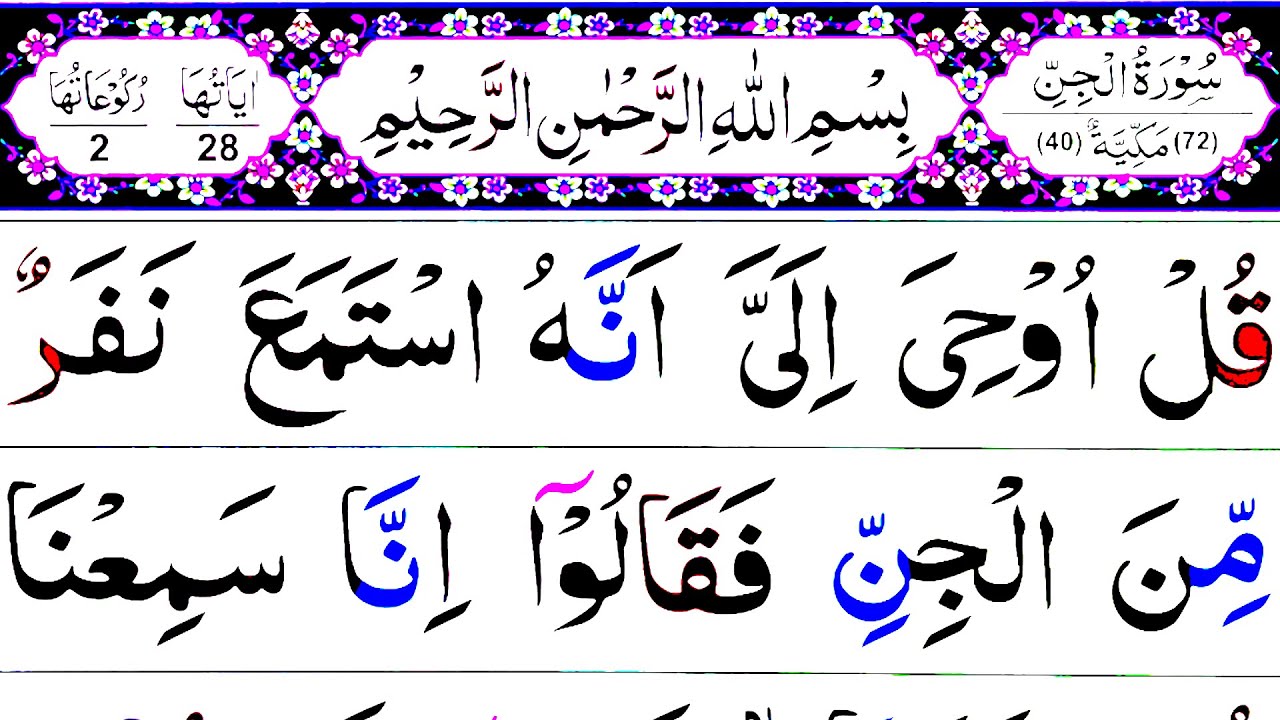 سُوْرَةُ الْجِنِّ
(72) مَكِّيَّةٌ (40)
بِسْمِ اللّٰهِ الرَّحْمٰنِ الرَّحِيْمِ
اٰيَاتُهَا 28
رُكُوْعَاتُهَا 2
قُلْ اُوْحِىَ اِلَىَّ اَنَّهُ اسْتَمَعَ نَفَرٌ
مِّنَ الْجِنِّ فَقَالُوْۤا اِنَّا سَمِعْنَا